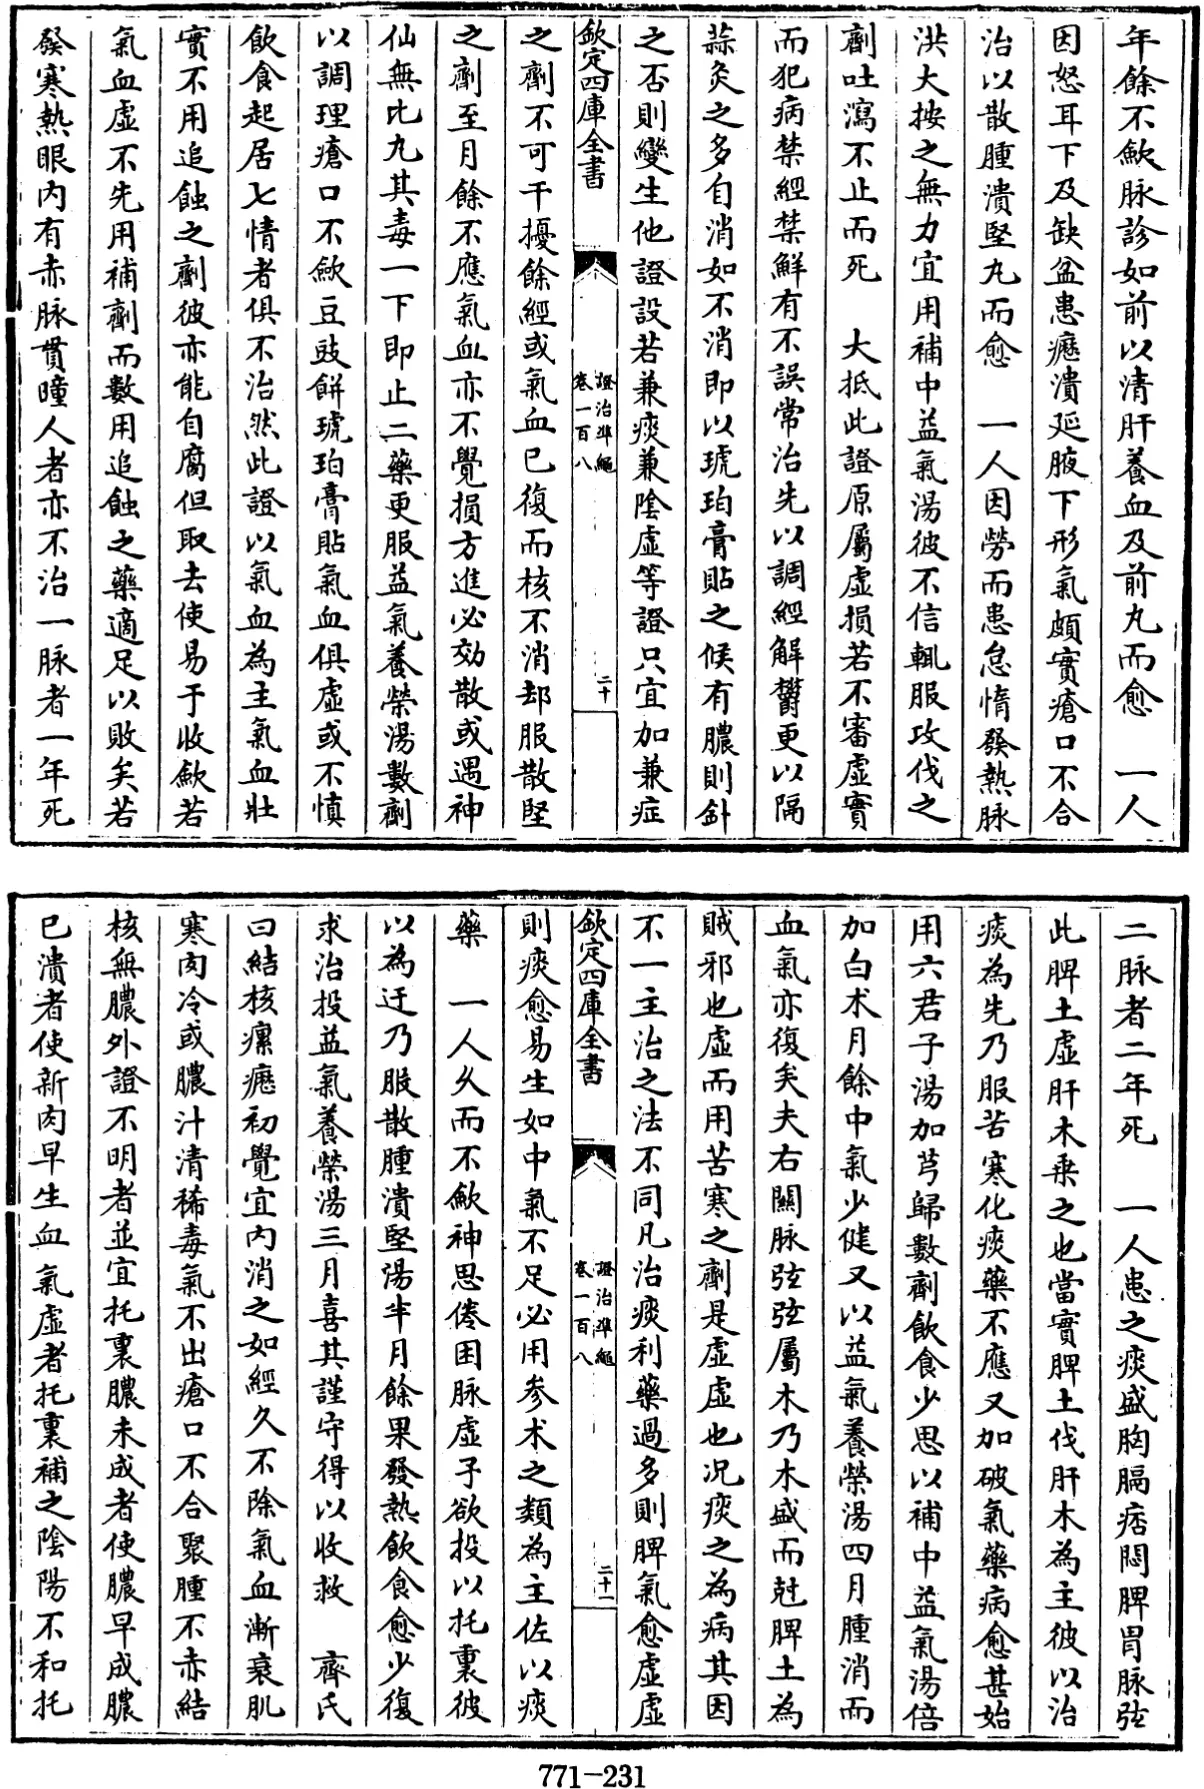 年餘不歛脉診如前以清肝養血及前丸而愈　一人
因怒耳下及缺盆患瘛潰延腋下形氣頗實瘡口不合
治以散腫潰堅丸而愈　一人因勞而患怠惰發熱脉
洪大按之無力宜用補中益氣湯彼不信輒服攻伐之
劑吐瀉不止而死　大抵此證原屬虛損若不審虛實
而犯病禁經禁鮮有不誤常治先以調經解鬱更以隔
蒜灸之多自消如不消即以琥珀膏貼之候有膿則針
之否則變生他證設若兼痰兼陰虛等證只宜加兼症
欽定四庫全書
證治準繩
卷一百八
二十
之劑不可干擾餘經或氣血已復而核不消却服散堅
之劑至月餘不應氣血亦不覺損方進必效散或遇神
仙無比丸其毒一下即止二藥更服益氣養榮湯數劑
以調理瘡口不歛豆豉餅琥珀膏貼氣血俱虛或不慎
飲食起居七情者俱不治然此證以氣血為主氣血壯
實不用追蝕之劑彼亦能自腐但取去使易于收歛若
氣血虛不先用補劑而數用追蝕之藥適足以敗矣若
發寒熱眼内有赤脉貫瞳人者亦不治一脉者一年死
二脉者二年死　一人患之痰盛胸膈痞悶脾胃脉弦
此脾土虛肝木乗之也當實脾土伐肝木為主彼以治
痰為先乃服苦寒化痰藥不應又加破氣藥病愈甚始
用六君子湯加芎歸數劑飲食少思以補中益氣湯倍
加白术月餘中氣少健又以益氣養榮湯四月腫消而
血氣亦復矣夫右關脉弦弦屬木乃木盛而尅脾土為
賊邪也虛而用苦寒之劑是虛虛也况痰之為病其因
不一主治之法不同凡治痰利藥過多則脾氣愈虛虛
欽定四庫全書
證治準繩
卷一百八
二十一
則痰愈易生如中氣不足必用參术之類為主佐以痰
藥　一人久而不歛神思倦困脉虛予欲投以托裏彼
以為迂乃服散腫潰堅湯半月餘果發熱飲食愈少復
求治投益氣養榮湯三月喜其謹守得以收救　齊氏
曰結核瘰癧初覺宜内消之如經久不除氣血漸衰肌
寒肉冷或膿汁清稀毒氣不出瘡口不合聚腫不赤結
核無膿外證不明者並宜托裏膿未成者使膿早成膿
已潰者使新肉早生血氣虛者托裏補之陰陽不和托
771—231